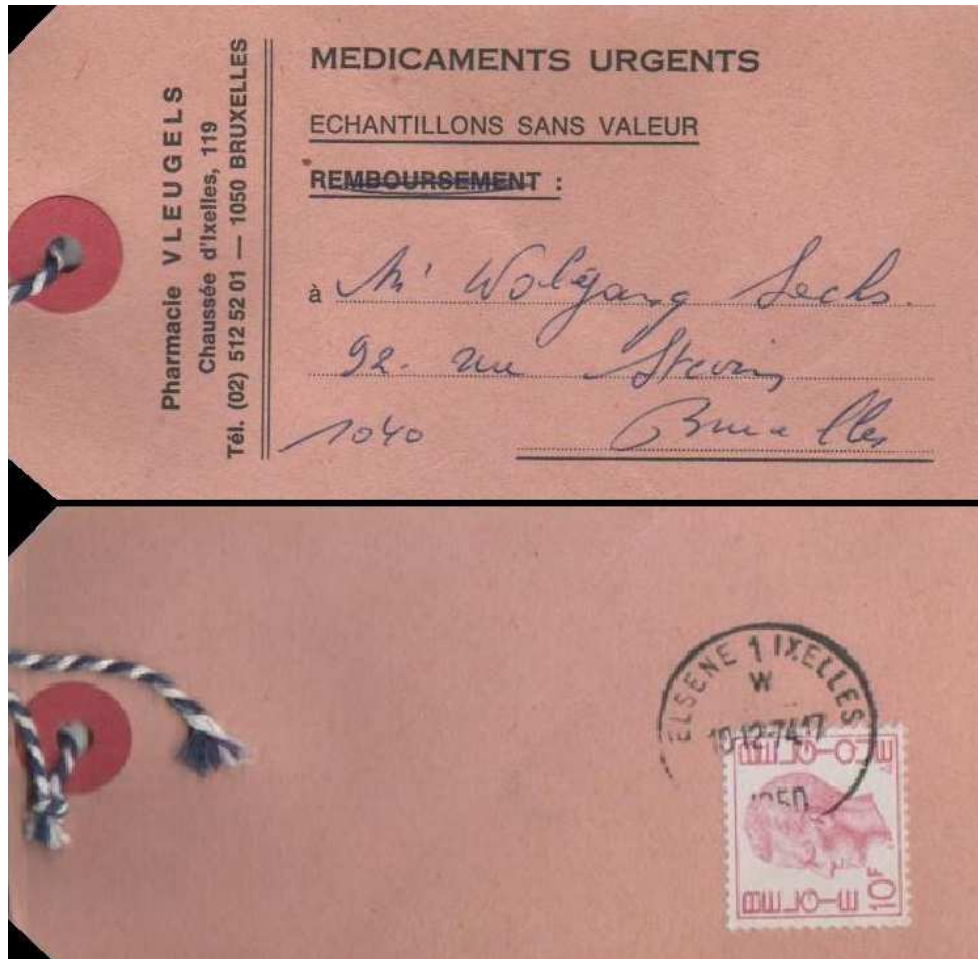 Pharmacie VLEUGELS
Chaussée d'Ixelles, 119
Tél. (02) 512 52 01 — 1050 BRUXELLES
MEDICAMENTS URGENTS
ECHANTILLONS SANS VALEUR
REMBOURSEMENT :
à Mr Wolfgang Sachs.
92. rue Stevin
1040 Bruxelles
ELSENE 1 IXELLES
W
10-12-74 17
1050
BELGIQUE
BELGIE 10F